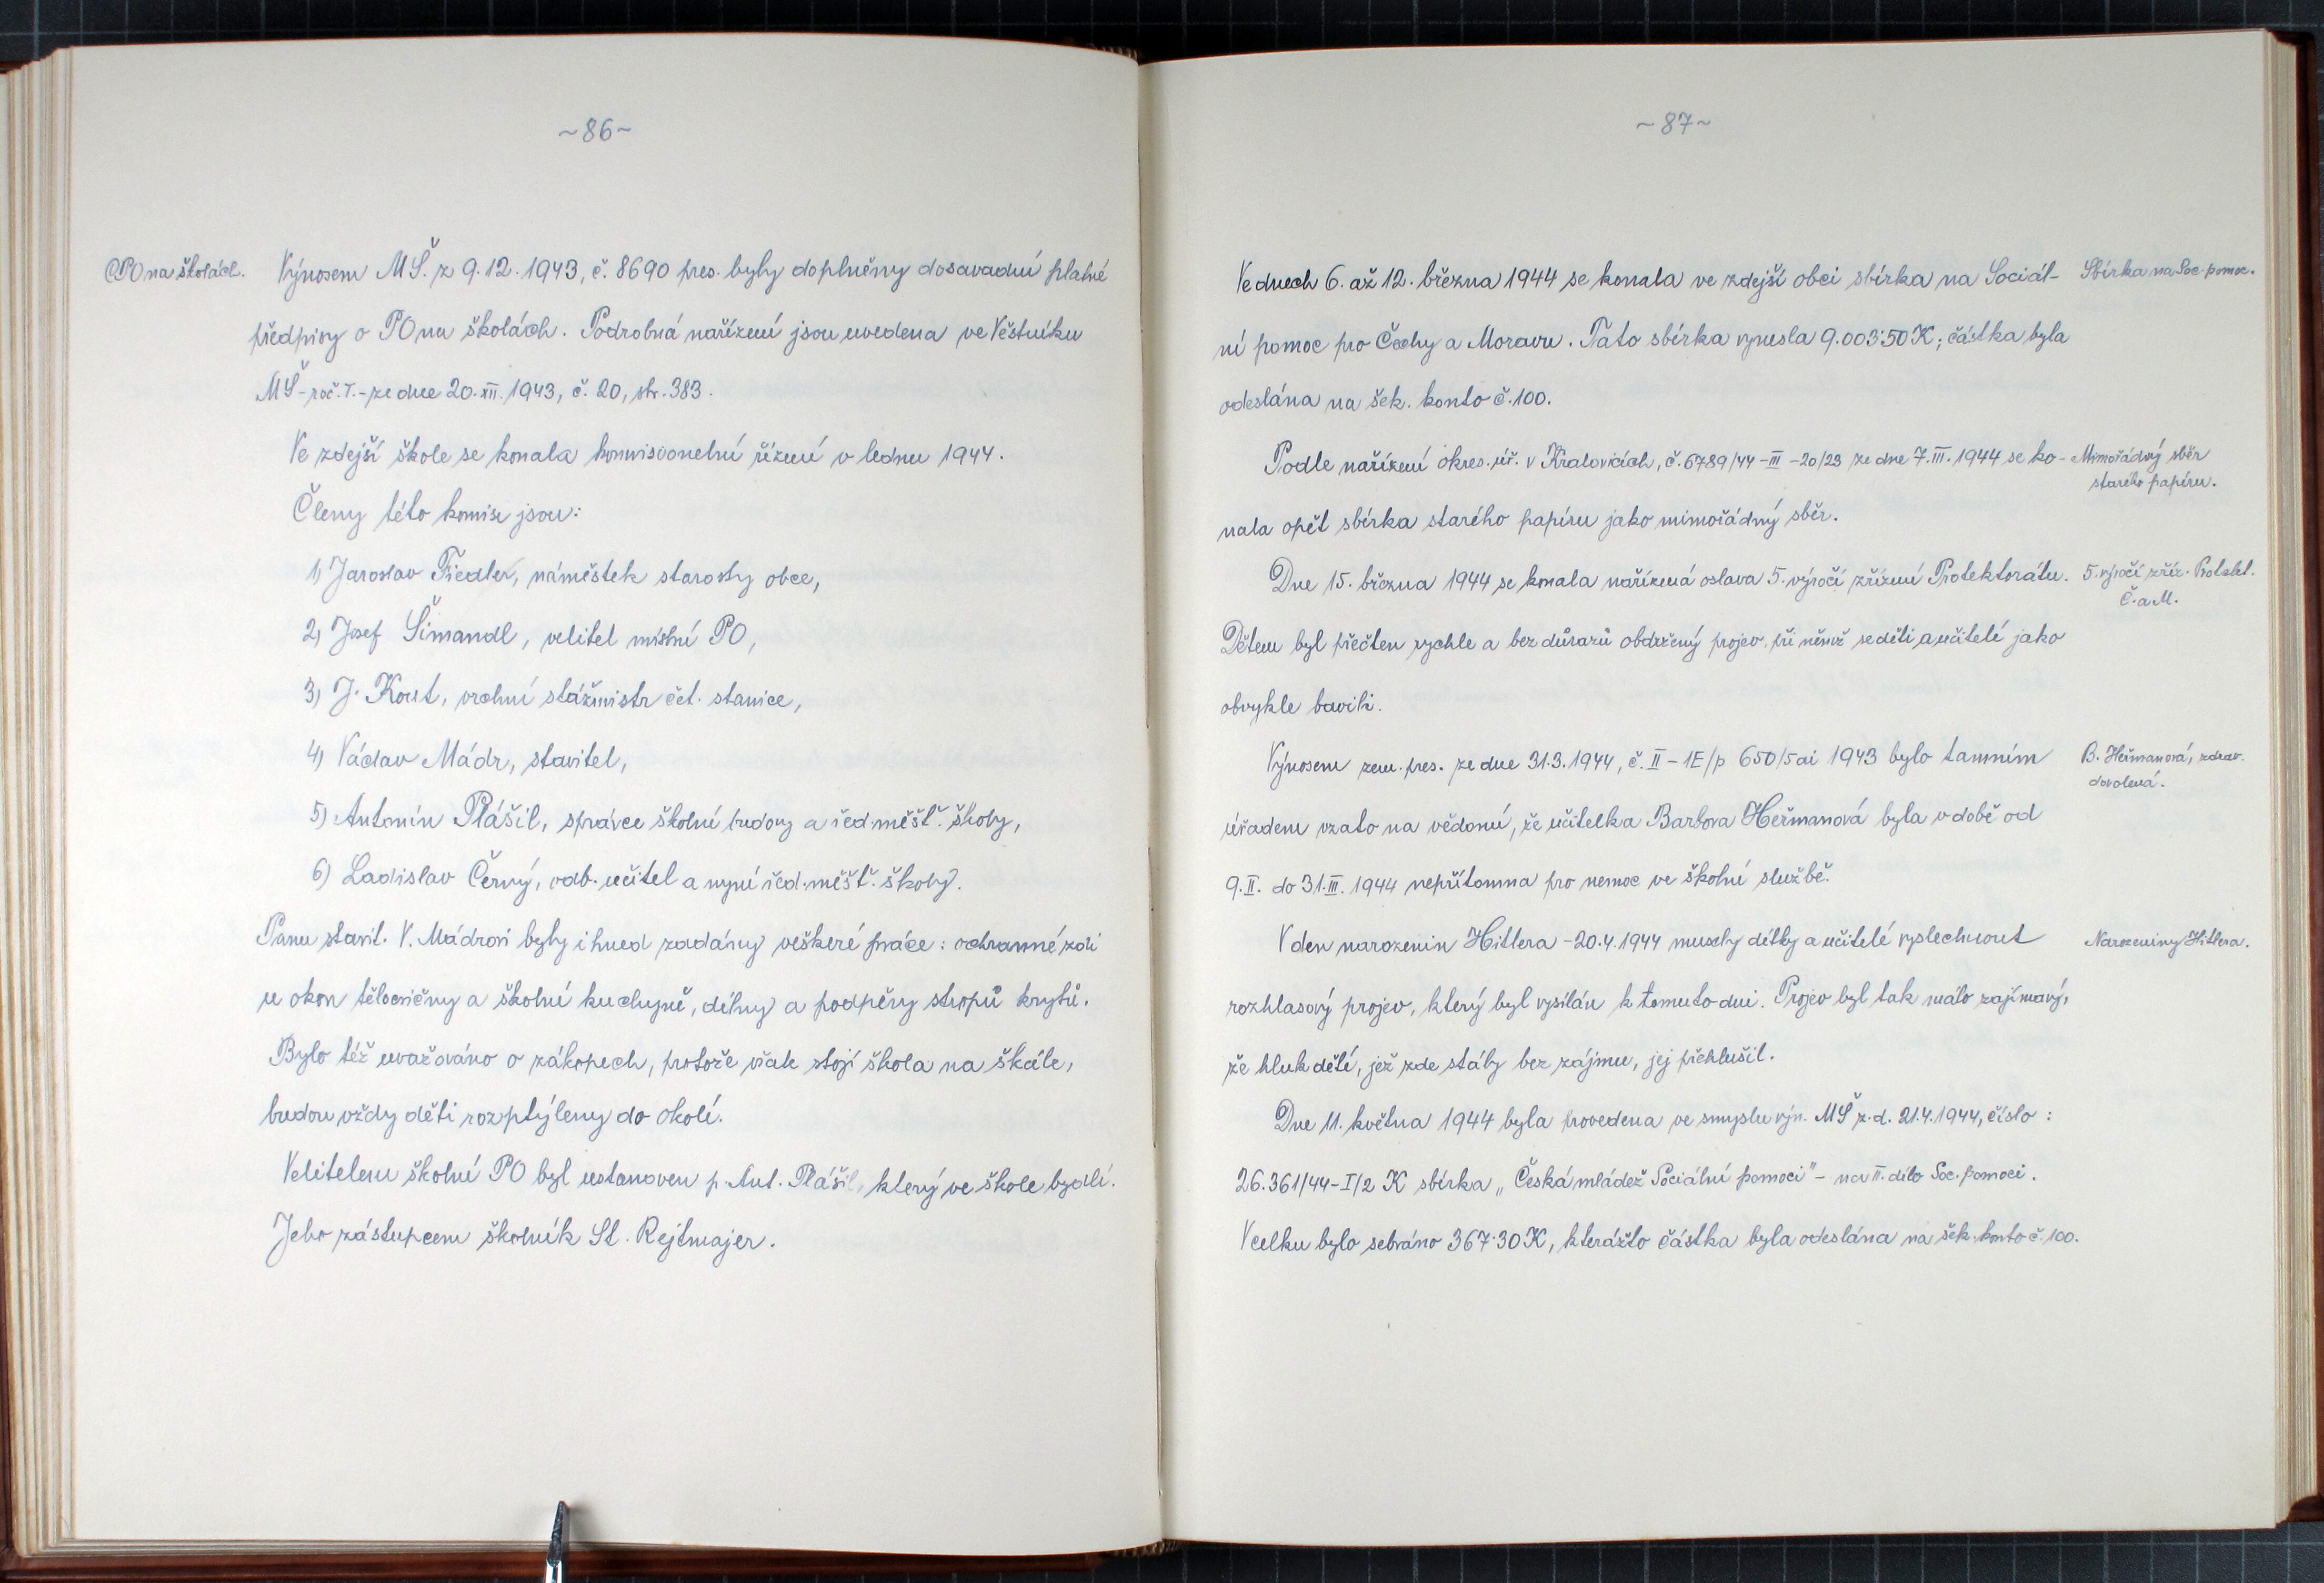 ~86~
CPO na školách.
Výnosem MŠ. z 9.12.1943, č. 8690 pres. byly doplněny dosavadní platné
předpisy o PO na školách. Podrobná nařízení jsou uvedena ve Věstníku
MŠ - roč. I. - ze dne 20.XII.1943, č. 20, str. 383.
Ve zdejší škole se konala komisionelní řízení v lednu 1944.
Členy této komise jsou:
1) Jaroslav Fiedler, náměstek starosty obce,
2) Josef Šimandl, velitel místní PO,
3) J. Kout, vrchní strážmistr čet. stanice,
4) Václav Mádr, stavitel,
5) Antonín Plášil, správce školní budovy a řed. měšť. školy,
6) Ladislav Černý, odb. učitel a nyní řed. měšť. školy.
Panu stavit. V. Mádrovi byly ihned zadány veškeré práce: ochranné zdi
u oken tělocvičny a školní kuchyně, dílny a podpěry stropů krytů.
Bylo též uvažováno o zákopech, protože však stojí škola na skále,
budou vždy děti rozptýleny do okolí.
Velitelem školní PO byl ustanoven p. Ant. Plášil, který ve škole bydlí.
Jeho zástupcem školník St. Rejtmajer.
~87~
Ve dnech 6. až 12. března 1944 se konala ve zdejší obci sbírka na Sociál-
Sbírka na Soc. pomoc.
ní pomoc pro Čechy a Moravu. Tato sbírka vynesla 9.003·50 K; částka byla
odeslána na šek. konto č. 100.
Podle nařízení okres. úř. v Kralovicích, č. 6789/44-III-20/23 ze dne 7.III.1944 se ko-
Mimořádný sběr
starého papíru.
nala opět sbírka starého papíru jako mimořádný sběr.
Dne 15. března 1944 se konala nařízená oslava 5. výročí zřízení Protektorátu.
5. výročí zříz. Protekt.
Č. a M.
Dětem byl přečten rychle a bez důrazů obdržený projev, při němž se děti a učitelé jako
obvykle bavili.
Výnosem zem. pres. ze dne 31.3.1944, č. II - 1E/p 650/5 ai 1943 bylo tamním
B. Heřmanová, zdrav.
dovolená.
úřadem vzato na vědomí, že učitelka Barbora Heřmanová byla v době od
9.II. do 31.III. 1944 nepřítomna pro nemoc ve školní službě.
V den narozenin Hitlera - 20.4.1944 musely dítky a učitelé vyslechnout
Narozeniny Hitlera.
rozhlasový projev, který byl vysílán k tomuto dni. Projev byl tak málo zajímavý,
že hluk dětí, jež zde stály bez zájmu, jej přehlušil.
Dne 11. května 1944 byla provedena ve smyslu výn. MŠ z. d. 21.4.1944, číslo:
26.361/44-I/2 K sbírka „Česká mládež Sociální pomoci" - na II. dílo Soc. pomoci.
V celku bylo sebráno 367·30 K, kterážto částka byla odeslána na šek. konto č. 100.